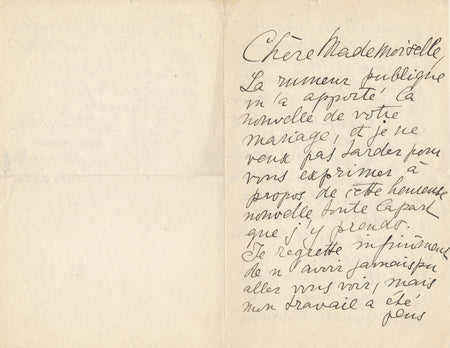 Chère Mademoiselle,
La rumeur publique
m'a apporté la
nouvelle de votre
mariage, et je ne
veux pas tarder pour
vous exprimer à
propos de cette heureuse
nouvelle toute la part
que j'y prends.
Je regrette infiniment
de n'avoir jamais pu
aller vous voir, mais
mon travail a été
plus